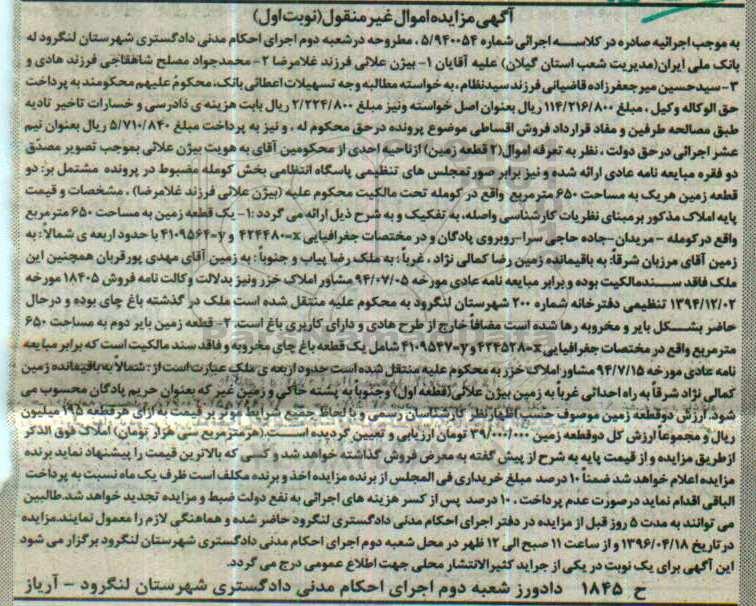 آگهی مزایده اموال غیر منقول(نوبت اول)
به موجب اجرائیه صادره در کلاسه اجرائی شماره ۵/۹۴۰۰۵۴ ، مطروحه درشعبه دوم اجرای احکام مدنی دادگستری شهرستان لنگرود له
بانک ملی ایران(مدیریت شعب استان گیلان) علیه آقایان ۱- بیژن علائی فرزند غلامرضا ۲- محمدجواد مصلح شاهقاجی فرزند هادی و
۳-سیدحسین میرجعفرزاده قاضیانی فرزند سیدنظام، به خواسته مطالبه وجه تسهیلات اعطائی بانک، محکوم علیهم محکومند به پرداخت
حق الوکاله وکیل ، مبلغ ۱۱۴/۲۱۶/۸۰۰ ریال بعنوان اصل خواسته ونیز مبلغ ۲/۲۲۴/۸۰۰ ریال بابت هزینه ی دادرسی و خسارات تاخیر تادیه
طبق مصالحه طرفین و مفاد قرارداد فروش اقساطی موضوع پرونده درحق محکوم له ، و نیز به پرداخت مبلغ ۵/۷۱۰/۸۴۰ ریال بعنوان نیم
عشر اجرائی درحق دولت ، نظر به تعرفه اموال(۲ قطعه زمین) ازناحیه احدی از محکومین آقای به هویت بیژن علائی بموجب تصویر مصدق
دو فقره مبایعه نامه عادی ارائه شده و نیز برابر صورتمجلس های تنظیمی پاسگاه انتظامی بخش کومله مضبوط در پرونده مشتمل بر: دو
قطعه زمین هریک به مساحت ۶۵۰ مترمربع واقع در کومله تحت مالکیت محکوم علیه (بیژن علائی فرزند غلامرضا) ، مشخصات و قیمت
پایه املاک مذکور بر مبنای نظریات کارشناسی واصله، به تفکیک و به شرح ذیل ارائه می گردد :۱- یک قطعه زمین به مساحت ۶۵۰ مترمربع
واقع در کومله - مریدان-جاده حاجی سرا-روبروی پادگان و در مختصات جغرافیایی x=۴۲۴۴۸۰ و y=۴۱۰۹۵۶۴ با حدود اربعه ی شمالاً: به
زمین آقای مرزبان شرقاً: به باقیمانده زمین رضا کمالی نژاد ، غرباً: به ملک رضا پیاب و جنوباً : به زمین آقای مهدی پورقربان همچنین این
ملک فاقد سندمالکیت بوده و برابر مبایعه نامه عادی مورخه ۹۴/۰۷/۰۵ مشاور املاک خزر ونیز بدلالت وکالت نامه فروش ۱۸۴۰۵ مورخه
۱۳۹۴/۱۲/۰۲ تنظیمی دفترخانه شماره ۲۰۰ شهرستان لنگرود به محکوم علیه منتقل شده است ملک در گذشته باغ چای بوده و درحال
حاضر بشکل بایر و مخروبه رها شده است مضافاً خارج از طرح هادی و دارای کاربری باغ است. ۲- قطعه زمین بایر دوم به مساحت ۶۵۰
مترمربع واقع در مختصات جغرافیایی x=۴۲۴۵۲۸ و y=۴۱۰۹۵۴۷ شامل یک قطعه باغ چای مخروبه و فاقد سند مالکیت است که برابر مبایعه
نامه عادی مورخه ۹۴/۷/۱۵ مشاور املاک خزر به محکوم علیه منتقل شده است حدود اربعه ی ملک عبارت است از : شمالاً به باقیمانده زمین
کمالی نژاد شرقاً به راه احداثی غرباً به زمین بیژن علائی(قطعه اول) وجنوباً به پشته خاکی و زمین غیر که بعنوان حریم پادگان محسوب می
شود. ارزش دوقطعه زمین موصوف حسب اظهارنظر کارشناسان رسمی و بالحاظ جمیع شرایط موثر بر قیمت به ازای هرقطعه ۱۹۵ میلیون
ریال و مجموعاً ارزش کل دوقطعه زمین ۳۹/۰۰۰/۰۰۰ تومان ارزیابی و تعیین گردیده است.(هرمترمربع سی هزار تومان) املاک فوق الذکر
ازطریق مزایده و از قیمت پایه به شرح از پیش گفته به معرض فروش گذاشته خواهد شد و کسی که بالاترین قیمت را پیشنهاد نماید برنده
مزایده اعلام خواهد شد ضمناً ۱۰ درصد مبلغ خریداری فی المجلس از برنده مزایده اخذ و برنده مکلف است ظرف یک ماه نسبت به پرداخت
الباقی اقدام نماید درصورت عدم پرداخت ، ۱۰ درصد پس از کسر هزینه های اجرائی به نفع دولت ضبط و مزایده تجدید خواهد شد.طالبین
می توانند به مدت ۵ روز قبل از مزایده در دفتر اجرای احکام مدنی دادگستری لنگرود حاضر شده و هماهنگی لازم را معمول نمایند.مزایده
در تاریخ ۱۳۹۶/۰۴/۱۸ و از ساعت ۱۱ صبح الی ۱۲ ظهر در محل شعبه دوم اجرای احکام مدنی دادگستری شهرستان لنگرود برگزار می شود
این آگهی برای یک نوبت در یکی از جراید کثیرالانتشار محلی جهت اطلاع عمومی درج می گردد.
ح ۱۸۴۵ دادورز شعبه دوم اجرای احکام مدنی دادگستری شهرستان لنگرود - آریاز